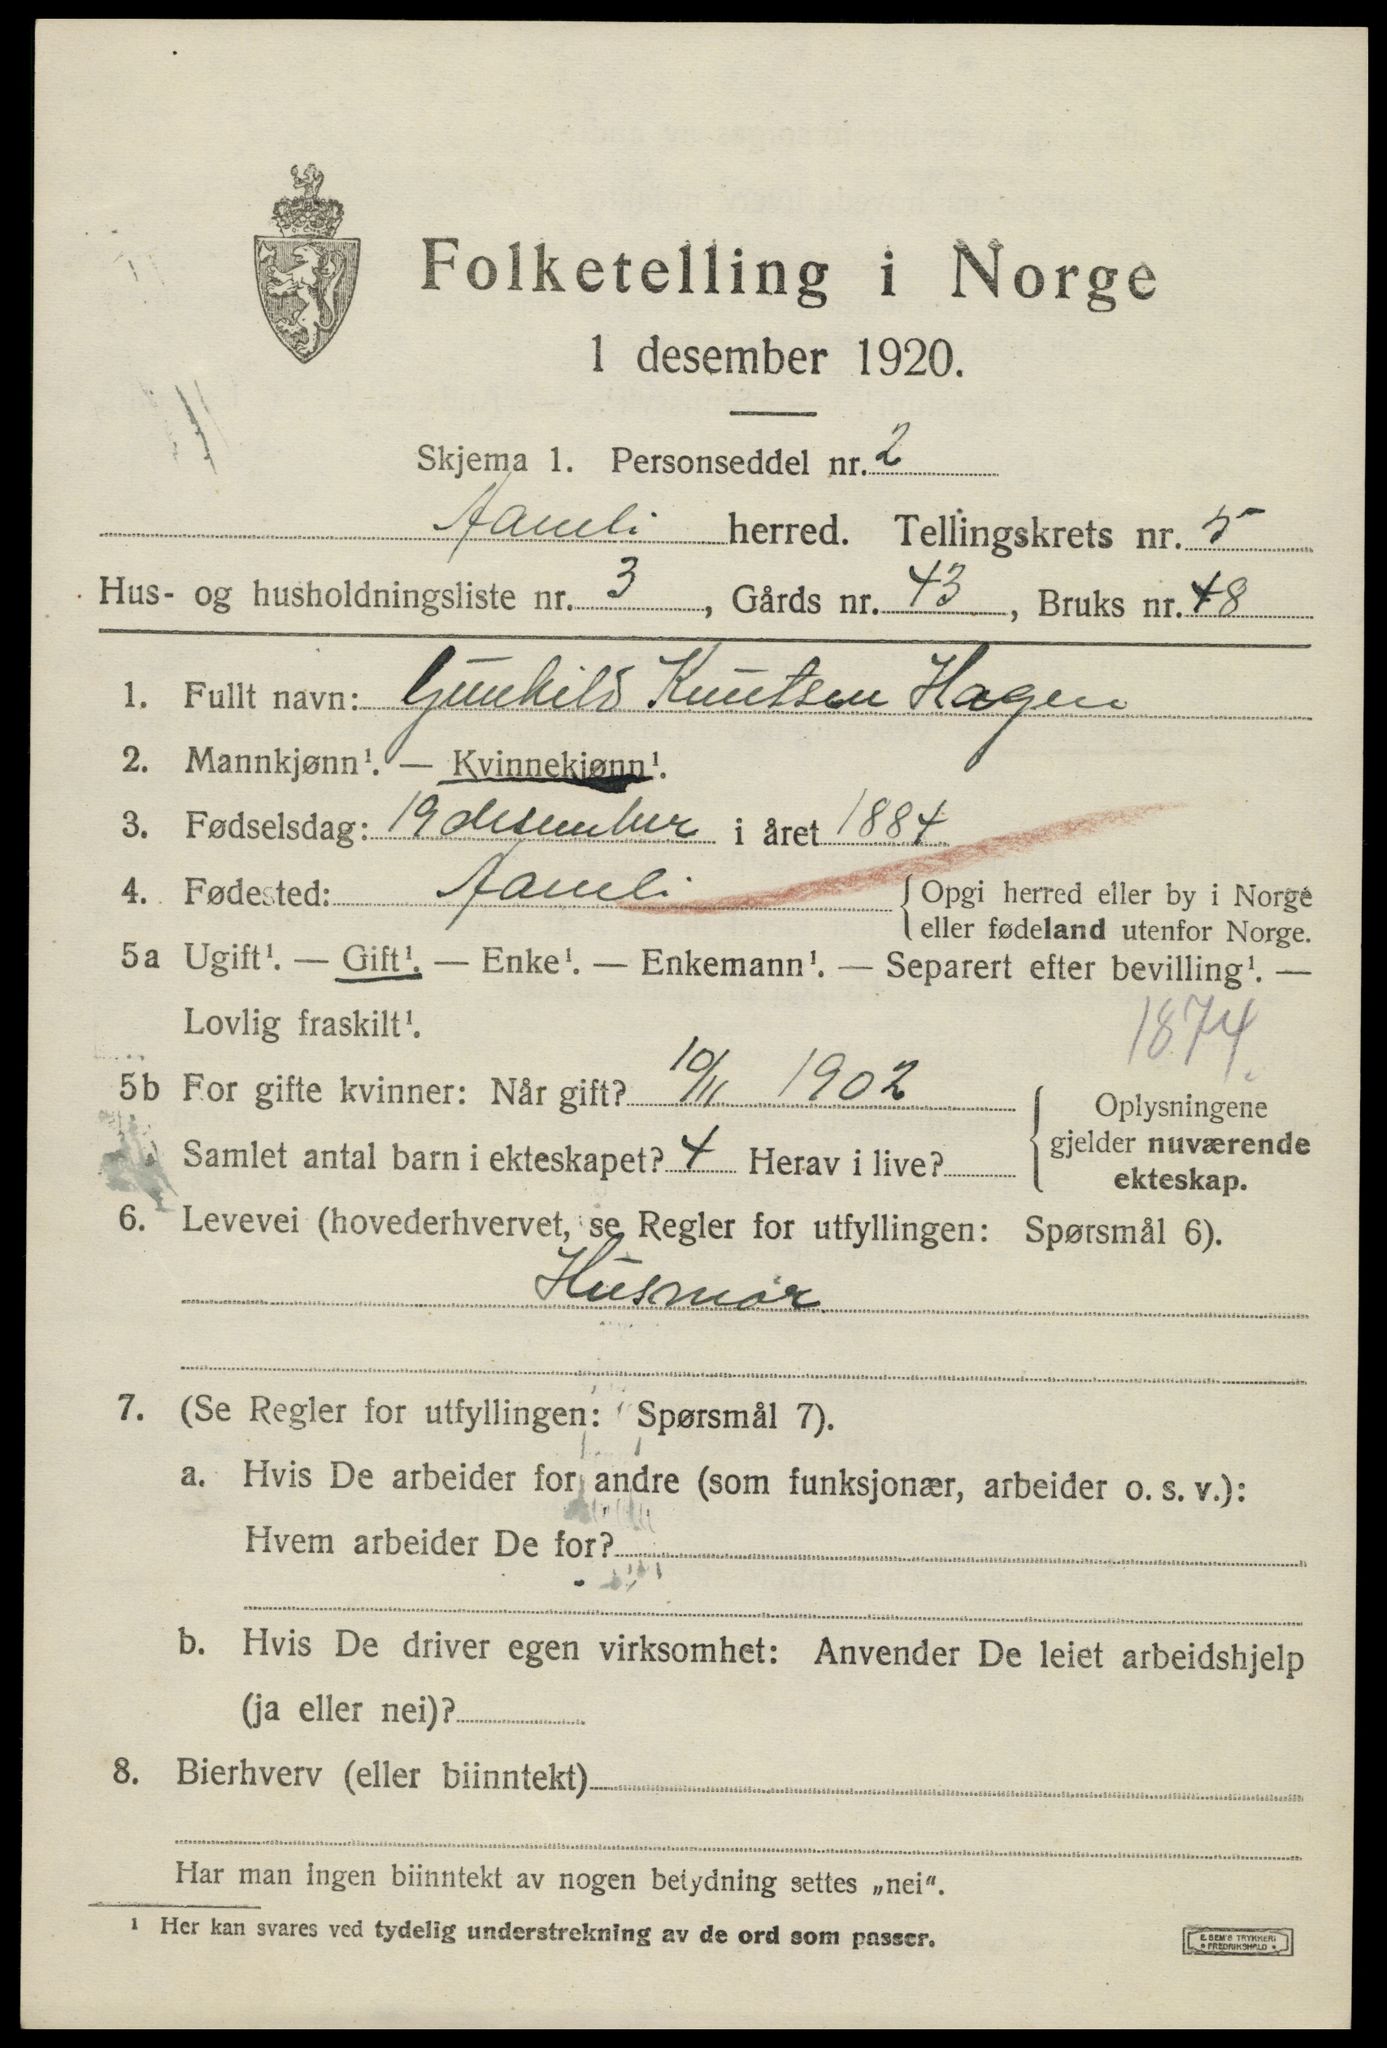 Folketelling i Norge
1 desember 1920.
Skjema 1. Personseddel nr. 2
Aamli herred. Tellingskrets nr. 5
Hus- og husholdningsliste nr. 3, Gårds nr. 43, Bruks nr. 48
1. Fullt navn: Gunhild Knutsen Hagen
2. Mannkjønn¹. — Kvinnekjønn¹.
3. Fødselsdag: 19 desember i året 1884
4. Fødested: Aamli { Opgi herred eller by i Norge
eller fødeland utenfor Norge.
5a Ugift¹. — Gift¹. — Enke¹. — Enkemann¹. — Separert efter bevilling¹. —
Lovlig fraskilt¹.
1874.
5b For gifte kvinner: Når gift? 10/11 1902
Samlet antal barn i ekteskapet? 4 Herav i live?
{ Oplysningene
gjelder nuværende
ekteskap.
6. Levevei (hovederhvervet, se Regler for utfyllingen: Spørsmål 6).
Husmor
7. (Se Regler for utfyllingen: Spørsmål 7).
a. Hvis De arbeider for andre (som funksjonær, arbeider o. s. v.):
Hvem arbeider De for?
b. Hvis De driver egen virksomhet: Anvender De leiet arbeidshjelp
(ja eller nei)?
8. Bierhverv (eller biinntekt)
Har man ingen biinntekt av nogen betydning settes „nei".
¹ Her kan svares ved tydelig understrekning av de ord som passer.
E. SEM'S TRYKKERI
• FREDRIKSHALD •